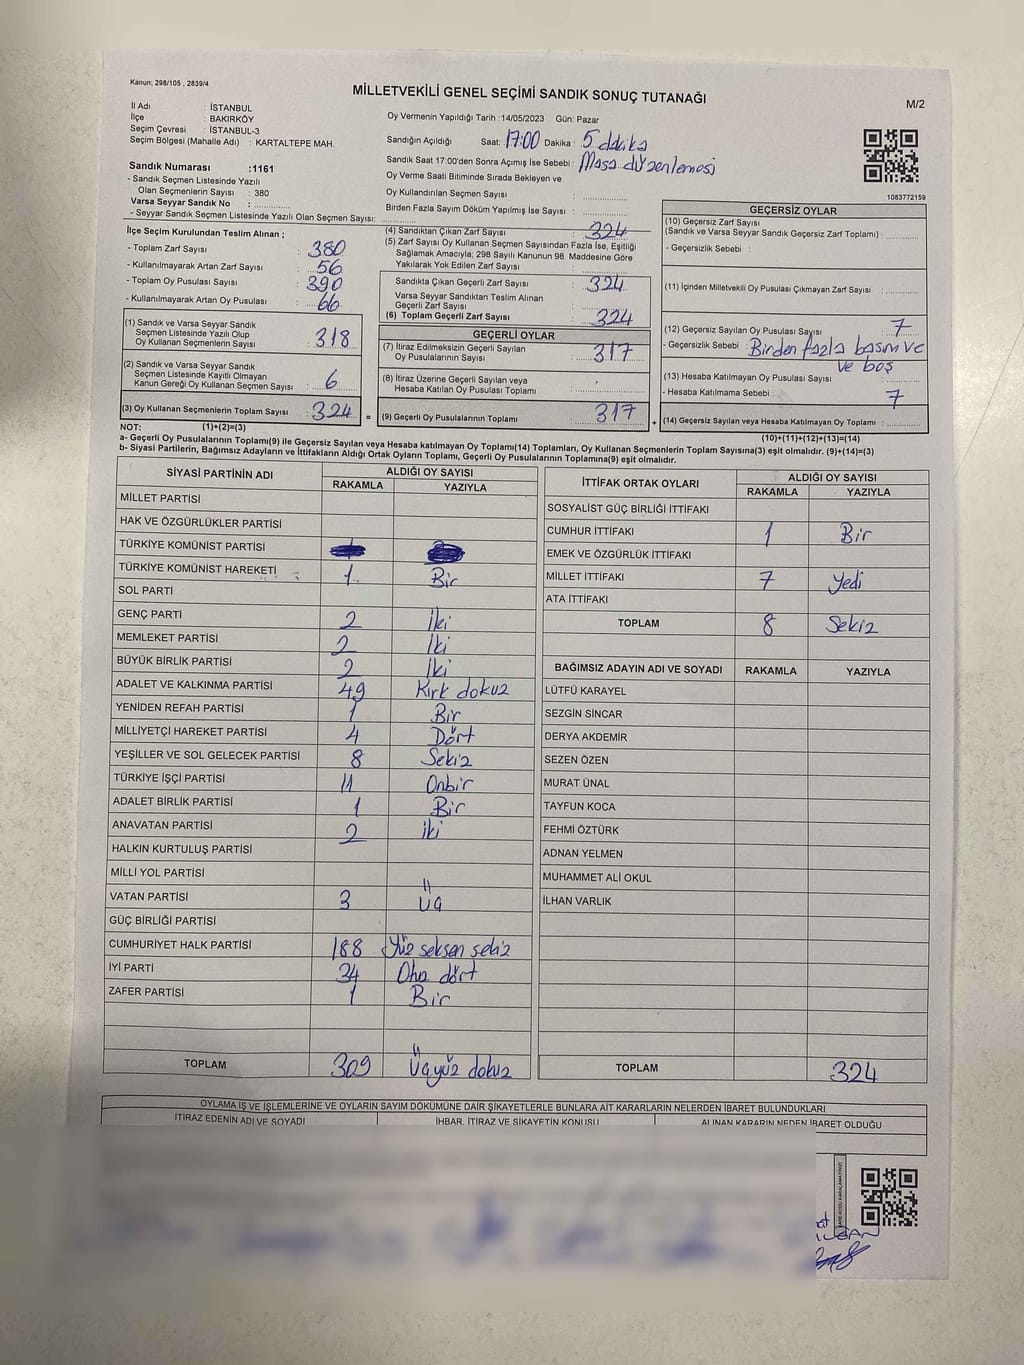 Kanun: 298/105 , 2839/4
MİLLETVEKİLİ GENEL SEÇİMİ SANDIK SONUÇ TUTANAĞI
M/2
İl Adı : İSTANBUL
İlçe : BAKIRKÖY
Seçim Çevresi : İSTANBUL-3
Seçim Bölgesi (Mahalle Adı) : KARTALTEPE MAH.
Oy Vermenin Yapıldığı Tarih :14/05/2023 Gün: Pazar
Sandığın Açıldığı Saat: 17:00 Dakika: 5 dakika
Sandık Saat 17:00'den Sonra Açımış İse Sebebi: Masa düzenlemesi
Oy Verme Saati Bitiminde Sırada Bekleyen ve
Oy Kullandırılan Seçmen Sayısı :
Birden Fazla Sayım Döküm Yapılmış İse Sayısı :
1083772159
Sandık Numarası :1161
- Sandık Seçmen Listesinde Yazılı
Olan Seçmenlerin Sayısı : 380
Varsa Seyyar Sandık No :
- Seyyar Sandık Seçmen Listesinde Yazılı Olan Seçmen Sayısı:
İlçe Seçim Kurulundan Teslim Alınan ;
- Toplam Zarf Sayısı : 380
- Kullanılmayarak Artan Zarf Sayısı : 56
- Toplam Oy Pusulası Sayısı : 390
- Kullanılmayarak Artan Oy Pusulası : 66
(1) Sandık ve Varsa Seyyar Sandık
Seçmen Listesinde Yazılı Olup
Oy Kullanan Seçmenlerin Sayısı : 318
(2) Sandık ve Varsa Seyyar Sandık
Seçmen Listesinde Kayıtlı Olmayan
Kanun Gereği Oy Kullanan Seçmen Sayısı : 6
(3) Oy Kullanan Seçmenlerin Toplam Sayısı : 324 =
(4) Sandıktan Çıkan Zarf Sayısı : 324
(5) Zarf Sayısı Oy Kullanan Seçmen Sayısından Fazla İse, Eşitliği
Sağlamak Amacıyla; 298 Sayılı Kanunun 98. Maddesine Göre
Yakılarak Yok Edilen Zarf Sayısı :
Sandıkta Çıkan Geçerli Zarf Sayısı : 324
Varsa Seyyar Sandıktan Teslim Alınan
Geçerli Zarf Sayısı :
(6) Toplam Geçerli Zarf Sayısı : 324
GEÇERLİ OYLAR
(7) İtiraz Edilmeksizin Geçerli Sayılan
Oy Pusulalarının Sayısı : 317
(8) İtiraz Üzerine Geçerli Sayılan veya
Hesaba Katılan Oy Pusulası Toplamı :
(9) Geçerli Oy Pusulalarının Toplamı : 317 +
GEÇERSİZ OYLAR
(10) Geçersiz Zarf Sayısı
(Sandık ve Varsa Seyyar Sandık Geçersiz Zarf Toplamı) :
- Geçersizlik Sebebi :
(11) İçinden Milletvekili Oy Pusulası Çıkmayan Zarf Sayısı :
(12) Geçersiz Sayılan Oy Pusulası Sayısı : 7
- Geçersizlik Sebebi : Birden fazla basım ve
ve boş
(13) Hesaba Katılmayan Oy Pusulası Sayısı :
- Hesaba Katılmama Sebebi : 7
(14) Geçersiz Sayılan veya Hesaba Katılmayan Oy Toplamı :
NOT: (1)+(2)=(3)
(10)+(11)+(12)+(13)=(14)
a- Geçerli Oy Pusulalarının Toplamı(9) ile Geçersiz Sayılan veya Hesaba katılmayan Oy Toplamı(14) Toplamları, Oy Kullanan Seçmenlerin Toplam Sayısına(3) eşit olmalıdır. (9)+(14)=(3)
b- Siyasi Partilerin, Bağımsız Adayların ve İttifakların Aldığı Ortak Oyların Toplamı, Geçerli Oy Pusulalarının Toplamına(9) eşit olmalıdır.
SİYASİ PARTİNİN ADI ALDIĞI OY SAYISI
RAKAMLA YAZIYLA
MİLLET PARTİSİ
HAK VE ÖZGÜRLÜKLER PARTİSİ
TÜRKİYE KOMÜNİST PARTİSİ
TÜRKİYE KOMÜNİST HAREKETİ 1 Bir
SOL PARTİ
GENÇ PARTİ 2 İki
MEMLEKET PARTİSİ 2 İki
BÜYÜK BİRLİK PARTİSİ 2 İki
ADALET VE KALKINMA PARTİSİ 49 Kırk dokuz
YENİDEN REFAH PARTİSİ 1 Bir
MİLLİYETÇİ HAREKET PARTİSİ 4 Dört
YEŞİLLER VE SOL GELECEK PARTİSİ 8 Sekiz
TÜRKİYE İŞÇİ PARTİSİ 11 Onbir
ADALET BİRLİK PARTİSİ 1 Bir
ANAVATAN PARTİSİ 2 iki
HALKIN KURTULUŞ PARTİSİ
MİLLİ YOL PARTİSİ
VATAN PARTİSİ 3 Üç
GÜÇ BİRLİĞİ PARTİSİ
CUMHURİYET HALK PARTİSİ 188 Yüz seksen sekiz
İYİ PARTİ 34 Otuz dört
ZAFER PARTİSİ 1 Bir
TOPLAM 309 Üçyüz dokuz
İTTİFAK ORTAK OYLARI ALDIĞI OY SAYISI
RAKAMLA YAZIYLA
SOSYALİST GÜÇ BİRLİĞİ İTTİFAKI
CUMHUR İTTİFAKI 1 Bir
EMEK VE ÖZGÜRLÜK İTTİFAKI
MİLLET İTTİFAKI 7 Yedi
ATA İTTİFAKI
TOPLAM 8 Sekiz
BAĞIMSIZ ADAYIN ADI VE SOYADI RAKAMLA YAZIYLA
LÜTFÜ KARAYEL
SEZGİN SİNCAR
DERYA AKDEMİR
SEZEN ÖZEN
MURAT ÜNAL
TAYFUN KOCA
FEHMİ ÖZTÜRK
ADNAN YELMEN
MUHAMMET ALİ OKUL
İLHAN VARLIK
TOPLAM 324
OYLAMA İŞ VE İŞLEMLERİNE VE OYLARIN SAYIM DÖKÜMÜNE DAİR ŞİKAYETLERLE BUNLARA AİT KARARLARIN NELERDEN İBARET BULUNDUKLARI
İTİRAZ EDENİN ADI VE SOYADI İHBAR, İTİRAZ VE ŞİKAYETİN KONUSU ALINAN KARARIN NEDEN İBARET OLDUĞU